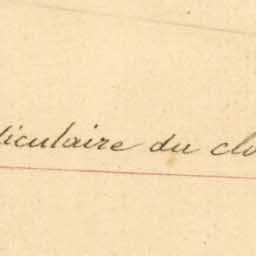 diculaire du clo